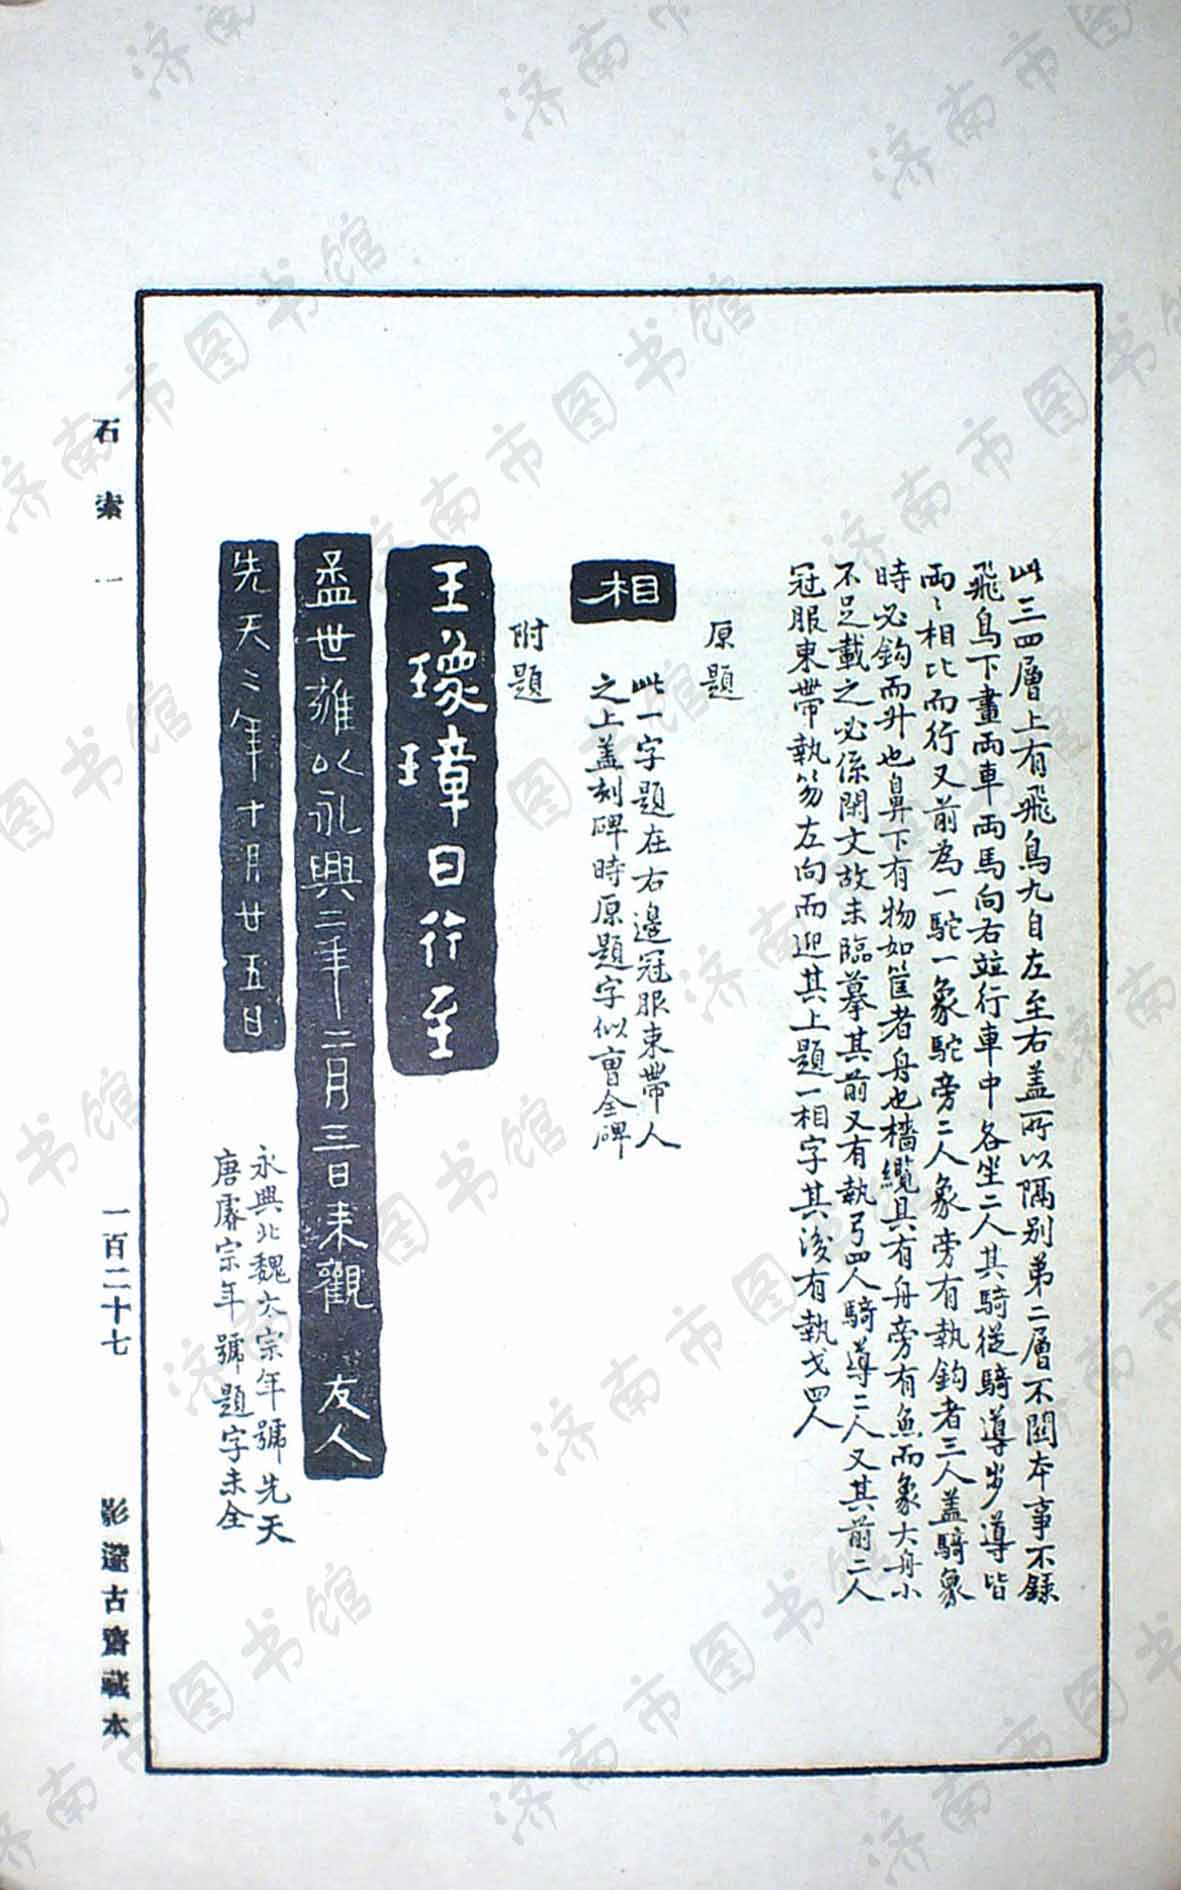 此三四層上有飛鳥九自左至右盖所以隔別第二層不關本事不錄
飛鳥下畫兩車兩馬向右竝行車中各坐二人其騎從騎導步導皆
兩〻相比而行又前為一駝一象駝旁二人象旁有執鈎者三人盖騎象
時必鈎而升也鼻下有物如筐者舟也檣纜具有舟旁有魚而象大舟小
不足載之必係閑文故未臨摹其前又有執弓四人騎導二人又其前二人
冠服束帶執笏左向而迎其上題一相字其後有執戈四人
原題
相
此一字題在右邊冠服束帶人
之上盖刻碑時原題字似曹全碑
附題
王瓊璋日行至
孟世雍以永興二年二月三日來觀 友人
先天二年十月廿五日
永興北魏太宗年號先天
唐睿宗年號題字未全
石索一
一百二十七
影邃古齋藏本
济南市图书馆